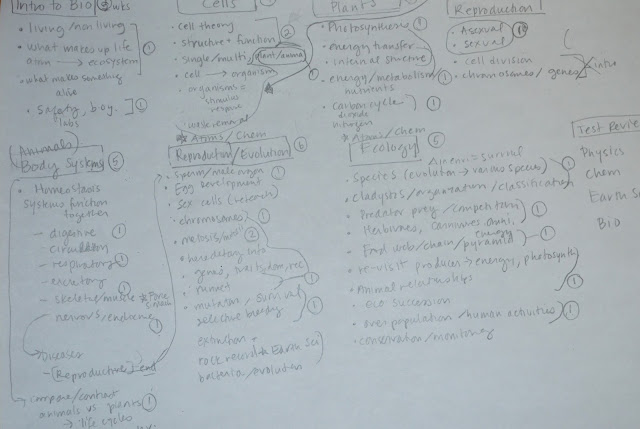 Intro to Bio wks
• living/non living
• what makes up life
atom → ecosystem
①
• what makes something
alive
• safety, bey.
labs
①
Cells
• cell theory
• structure + function
②
• single/multi, plant/animal
• cell → organism
• organisms =
stimulus
response
* Atoms / Chem
Plants
• Photosynthesis ①
• energy transfer
• internal structure
①
• energy/metabolism
nutrients
①
• Carbon cycle
dioxide
nitrogen
①
* Atoms/chem
Reproduction
• Asexual
• sexual
• cell division
• chromosomes/genes
intro
(Animals)
Body Systems ⑤
• Homeostasis
systems function
together
- digestive ①
- circulatory
- respiratory ①
- excretory ①
- skeletal/muscle
- nervous, endocrine
①
→ Diseases
- [Reproductive] end
→ compare/contrast
animals vs plants ①
→ life cycles
Reproduction/Evolution ⑥
• sperm/male organ ①
• Egg development
• Sex cells
• chromosomes ①
• meiosis/mitosis ②
• hereditary info
• genes, traits, dom, rec
• punnet
①
• mutation / survival
selective breeding
①
extinction +
rock record → Earth Sci
bacteria, evolution
Ecology ⑥
= survival
• Species (evolution → various species)
• cladistics/organization / classification
①
• Predator prey / competition
①
• Herbivores, carnivores, omni.
• energy
• Food web/chain/pyramid
①
• re-visit producer → energy, photosynth
• Animal relationships
①
• eco succession
• over population / human activities
①
• conservation/monitoring
Test Revie
Physics
Chem
Earth Sc
Bio